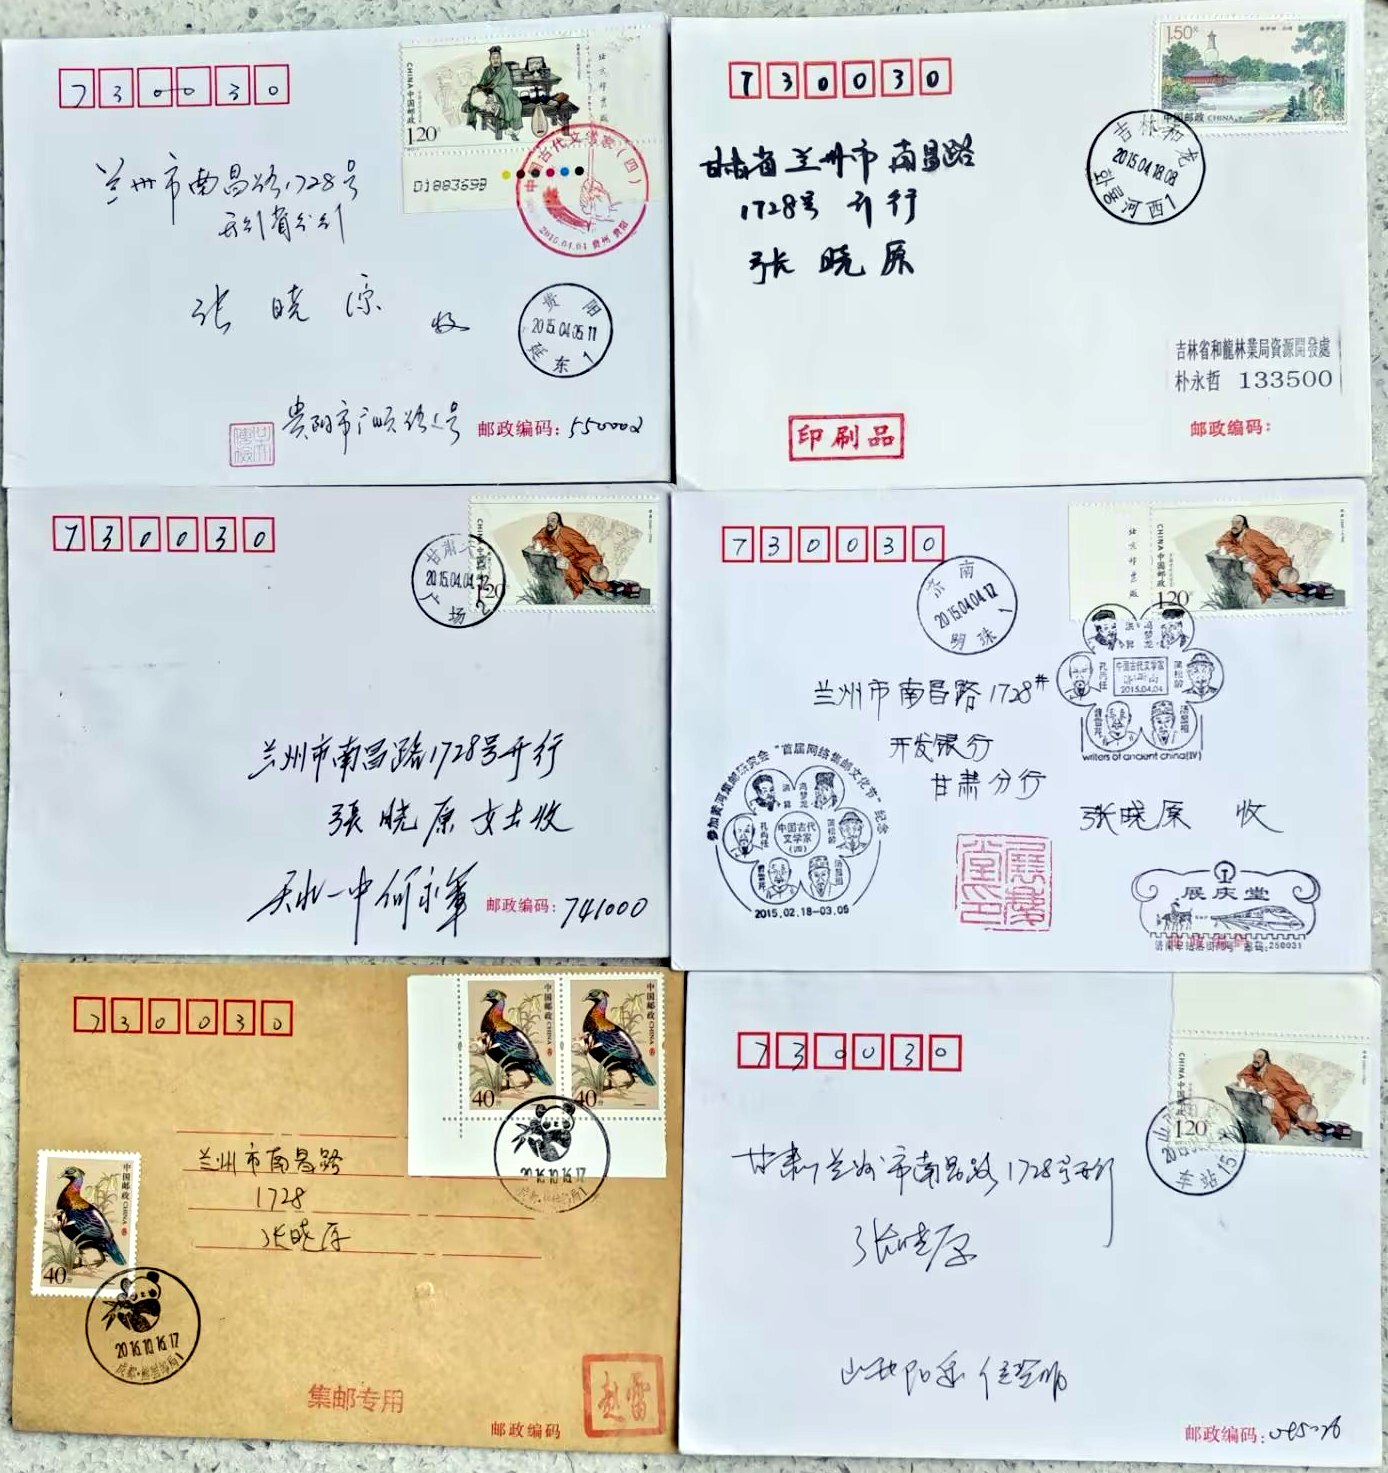 730030
中国邮政
CHINA
1.20元
01883698
中国古代文学家(四)
2015.04.04 贵州 贵阳
兰州市南昌路1728号
张晓
收
贵阳
2015.04.05.11
延东1
贵阳市
邮政编码:550002
730030
1.50元
中国邮政 CHINA
吉林和龙
2015.04.18.08
화룡河西1
甘肃省兰州市南昌路
1728号开行
张晓原
吉林省和龍林業局資源開發處
朴永哲 133500
印刷品
邮政编码:
730030
CHINA中国邮政
1.20
甘肃
2015.04.04.12
广场
兰州市南昌路1728号开行
張晓原女士收
天水一中何永军
邮政编码:741000
730030
CHINA中国邮政
1.20元
济南
2015.04.04.12
明珠1
洪昇
冯梦龙
孔尚任
中国古代文学家
2015.04.04
蒲松龄
曹雪芹
汤显祖
writers of ancient china(IV)
兰州市南昌路1728#
开发银行
甘肃分行
张晓原 收
参加黄河集邮研究会"首届网络集邮文化节"纪念
洪昇
冯梦龙
孔尚任
中国古代
文学家
(四)
蒲松龄
曹雪芹
汤显祖
2015.02.18-03.05
展庆堂
邮编:250031
730030
中国邮政 CHINA
40分
中国邮政 CHINA
40分
2016.10.16.17
兰州市南昌路
1728
张晓原
中国邮政 CHINA
40分
2016.10.16.17
成都·熊猫邮局1
集邮专用
赵雷
邮政编码
730030
CHINA中国邮政
1.20
山
车站15
甘肃兰州市南昌路1728号开行
张晓原
邮政编码: